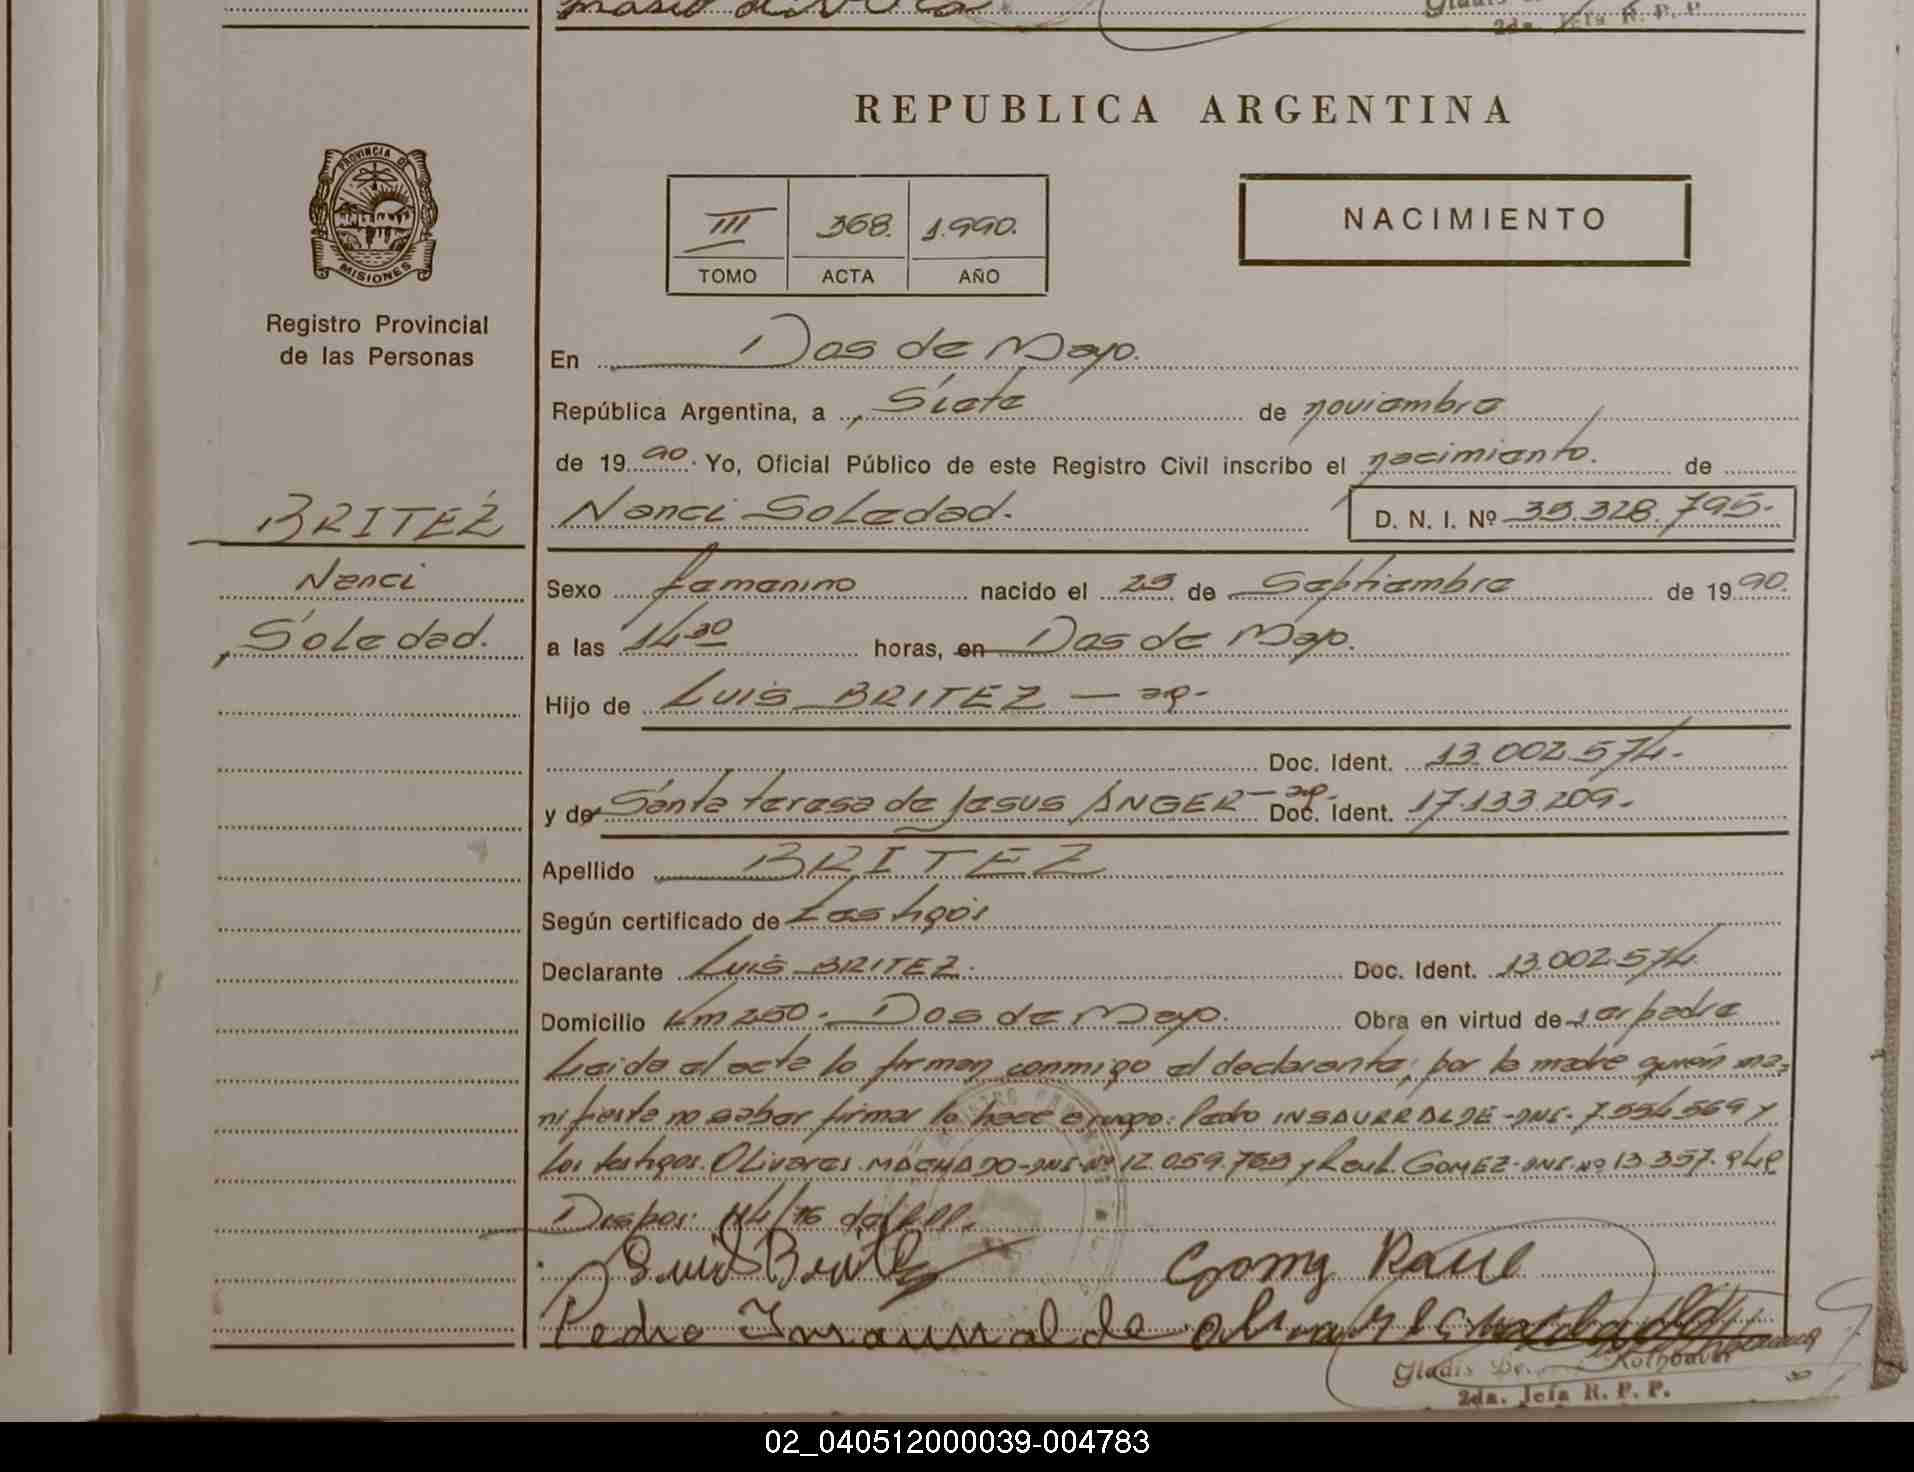 2da. Jefa R. P. P.
REPUBLICA ARGENTINA
PROVINCIA DE
MISIONES
Registro Provincial
de las Personas
III 368. 1.990.
TOMO ACTA AÑO
NACIMIENTO
En Dos de Mayo.
República Argentina, a Siete de noviembre
de 19 90. Yo, Oficial Público de este Registro Civil inscribo el nacimiento. de
BRITEZ
Nanci Soledad. D. N. I. Nº 35.328.795.-
Nanci
Soledad.
Sexo femenino nacido el 25 de Septiembre de 19 90.
a las 14 30 horas, en Dos de Mayo.
Hijo de LUIS BRITEZ — ap.-
Doc. Ident. 13.002.574.-
y de Santa teresa de Jesus ANGER - ap.- Doc. Ident. 17.133.209.-
Apellido BRITEZ
Según certificado de testigos
Declarante LUIS BRITEZ. Doc. Ident. 13.002.574
Domicilio Km 250. Dos de Mayo. Obra en virtud de ser padre
Leida el acta la firman conmigo el declarante, por la madre quién ma-
nifiesta no saber firmar lo hace a ruego: Pedro INSAURRALDE - DNI. 7.554.569 y
los testigos. Olivares MACHADO - DNI. Nº 12.059.769 y Raul GOMEZ - DNI. Nº 13.357.
Luis Britez
Gomez Raul
Pedro Insaurralde
Gladis Rothbauer
2da. Jefa R. P. P.
02_040512000039-004783